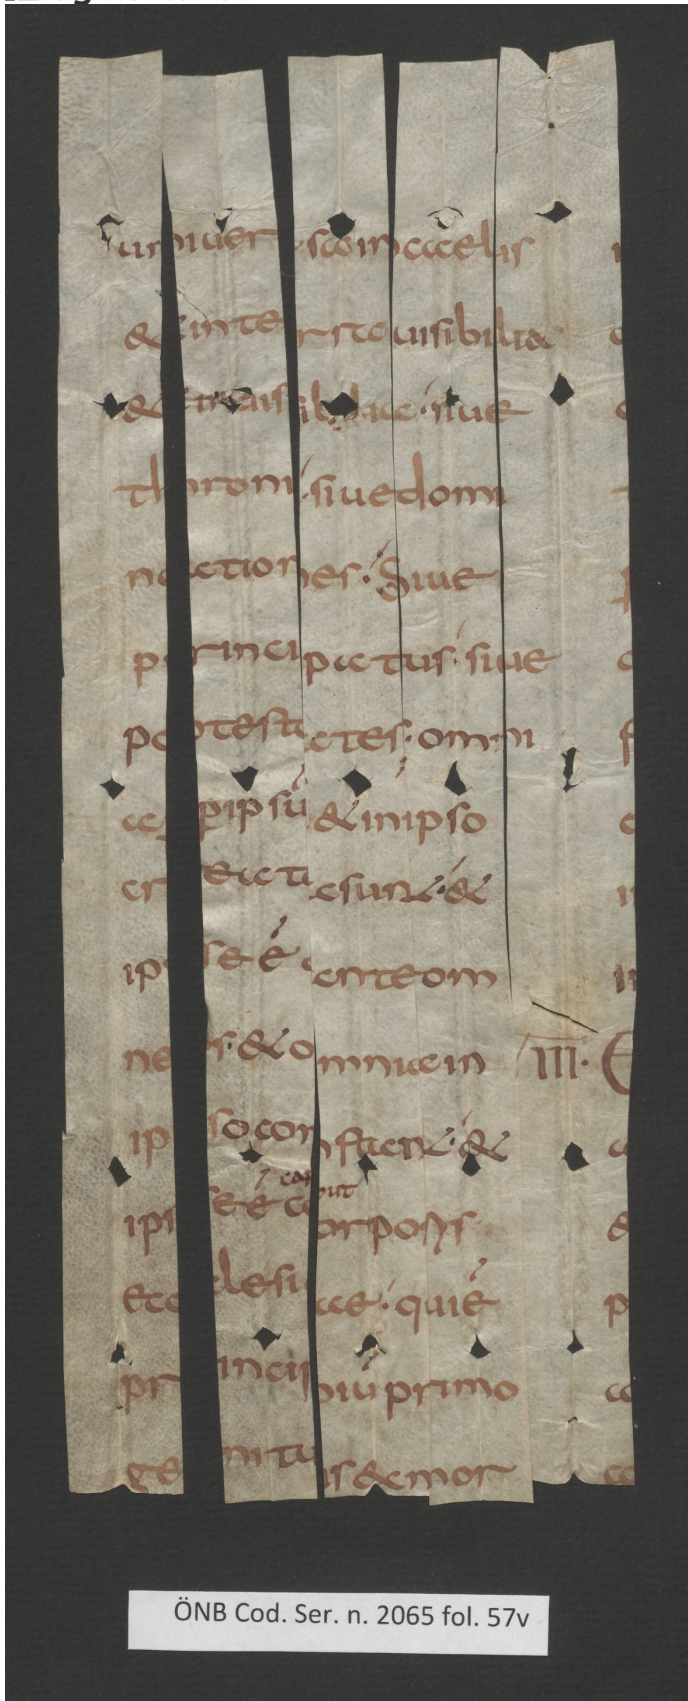 universa in caelis
& in terra uisibilia
& inuisibilia· siue
throni· siue domi
nationes· Siue
principatus· siue
potestates· omni
a p ipsū & in ipso
creata sun& · &
ipse ē ante om
nes· & omnia in
III· E
ipso constan& · &
caput
ipse ē corporis
ecclesiae· qui ē
principiū primo
genitus & mor
ÖNB Cod. Ser. n. 2065 fol. 57v